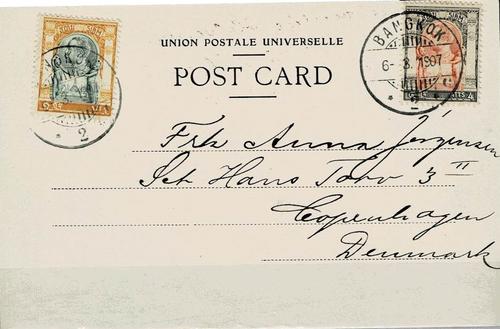 UNION POSTALE UNIVERSELLE
POST CARD
BANGKOK
6-8 1907
2
2
Frk Anna Jörgensen
Sct Hans Torv 3 II
Copenhagen
Denmark